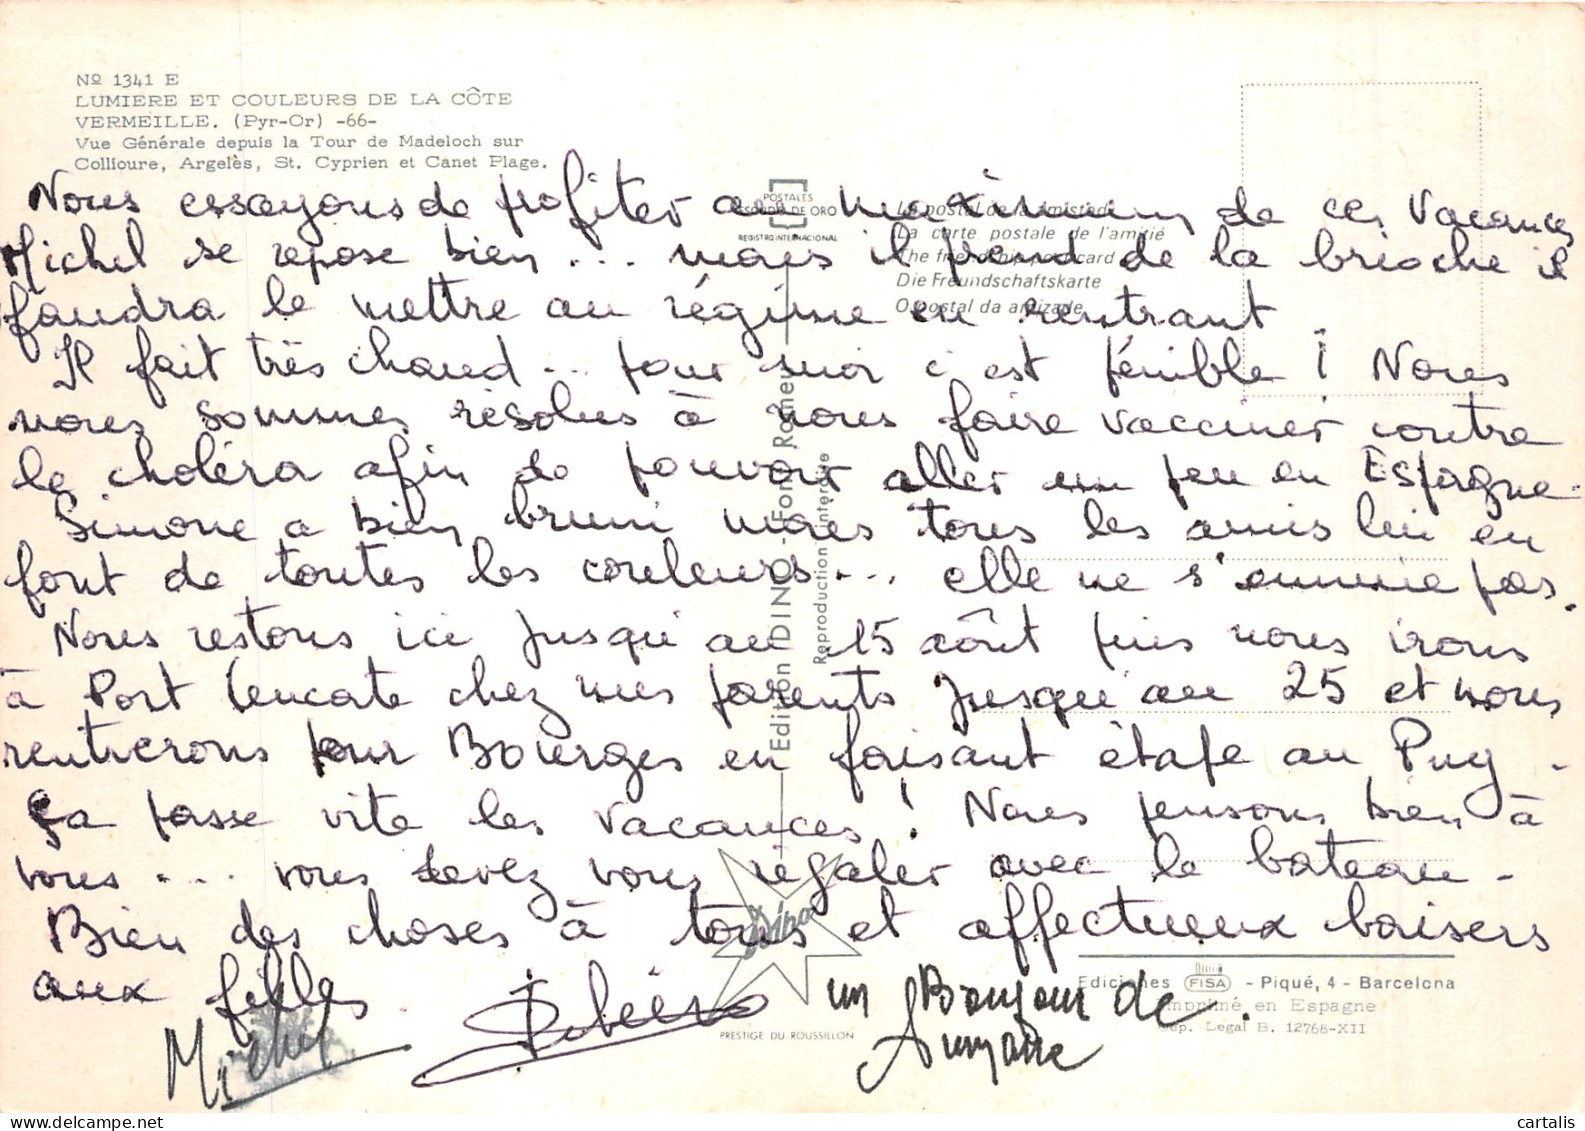 Nº 1341 E
LUMIERE ET COULEURS DE LA CÔTE
VERMEILLE. (Pyr-Or) -66-
Vue Générale depuis la Tour de Madeloch sur
Collioure, Argelès, St. Cyprien et Canet Plage.
POSTALES
ESCUDO DE ORO
REGISTRO INTERNACIONAL
La postal de la amistad
La carte postale de l'amitié
The friendship postcard
Die Freundschaftskarte
O postal da amizade
Nous essayons de profiter au maximum de ces vacances
Michel se repose bien ... mais il prend de la brioche il
faudra le mettre au régime en rentrant
Il fait très chaud ... pour moi c'est pénible ! Nous
nous sommes résolus à nous faire vacciner contre
le choléra afin de pouvoir aller un peu en Espagne.
Simone a bien bruni nous tous les amis lui en
font de toutes les couleurs ... elle ne s'ennuie pas.
Nous restons ici jusqu'au 15 août puis nous irons
à Port Leucate chez mes parents jusqu'au 25 et nous
rentrerons pour Bourges en faisant étape au Puy -
ça passe vite les vacances ! Nous pensons bien à
vous ... vous devez vous régaler avec le bateau -
Bien des choses à tous et affectueux baisers
aux filles
Michel
un Bonjour de
Edition DINO Font Romeu
Reproduction interdite
Dino
PRESTIGE DU ROUSSILLON
Ediciones FISA - Piqué, 4 - Barcelona
Imprimé en Espagne
Dep. Legal B. 12768-XII
cartalis